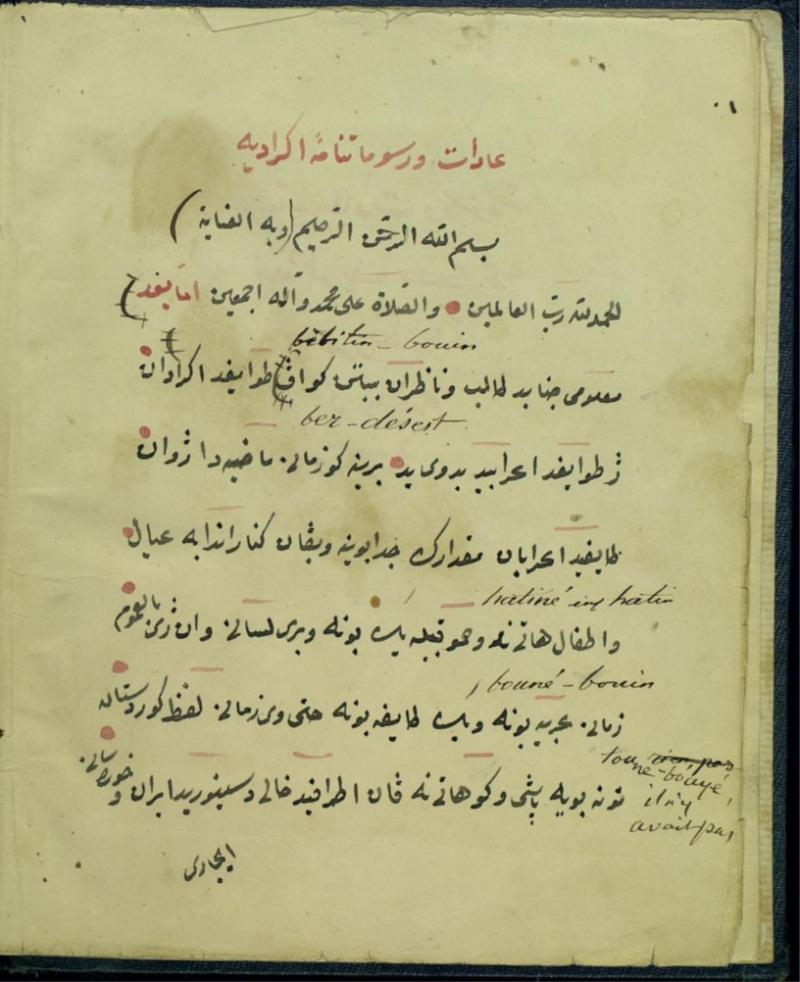 ١
عادات و رسوماتنامهٔ اکرادیه
بسم الله الرحمن الرحیم (وبه العنایة)
الحمدلله رب العالمین والصلاة علی محمد وآله اجمعین اما بعد
bèbitin - bouin
معلومی جنابد طالب و ناظران ببتن کو اڤ طوایفد اکرادان
ber - désert
ژ طوایفد اعرابید بدوی ید برینه کو زمانی ماضیه دا ژوان
طایفید اعرابان مقدارك جدا بوینه وبڤان کناراندا به عیال
hatiné inf hatin
واطفال هاتینه وهمو قبیله یك بونه وبری لسانی وان ژی بالعموم
bouné - bouin
زمانی عربی بونه ویك طایفه بونه حتی وی زمانی لفظ کوردستان
toune-bouyé,
il n'y
avait pas
تونه بویه پاشی وکو هاتنه ڤان اطرافید خالی وسینورید ایران و